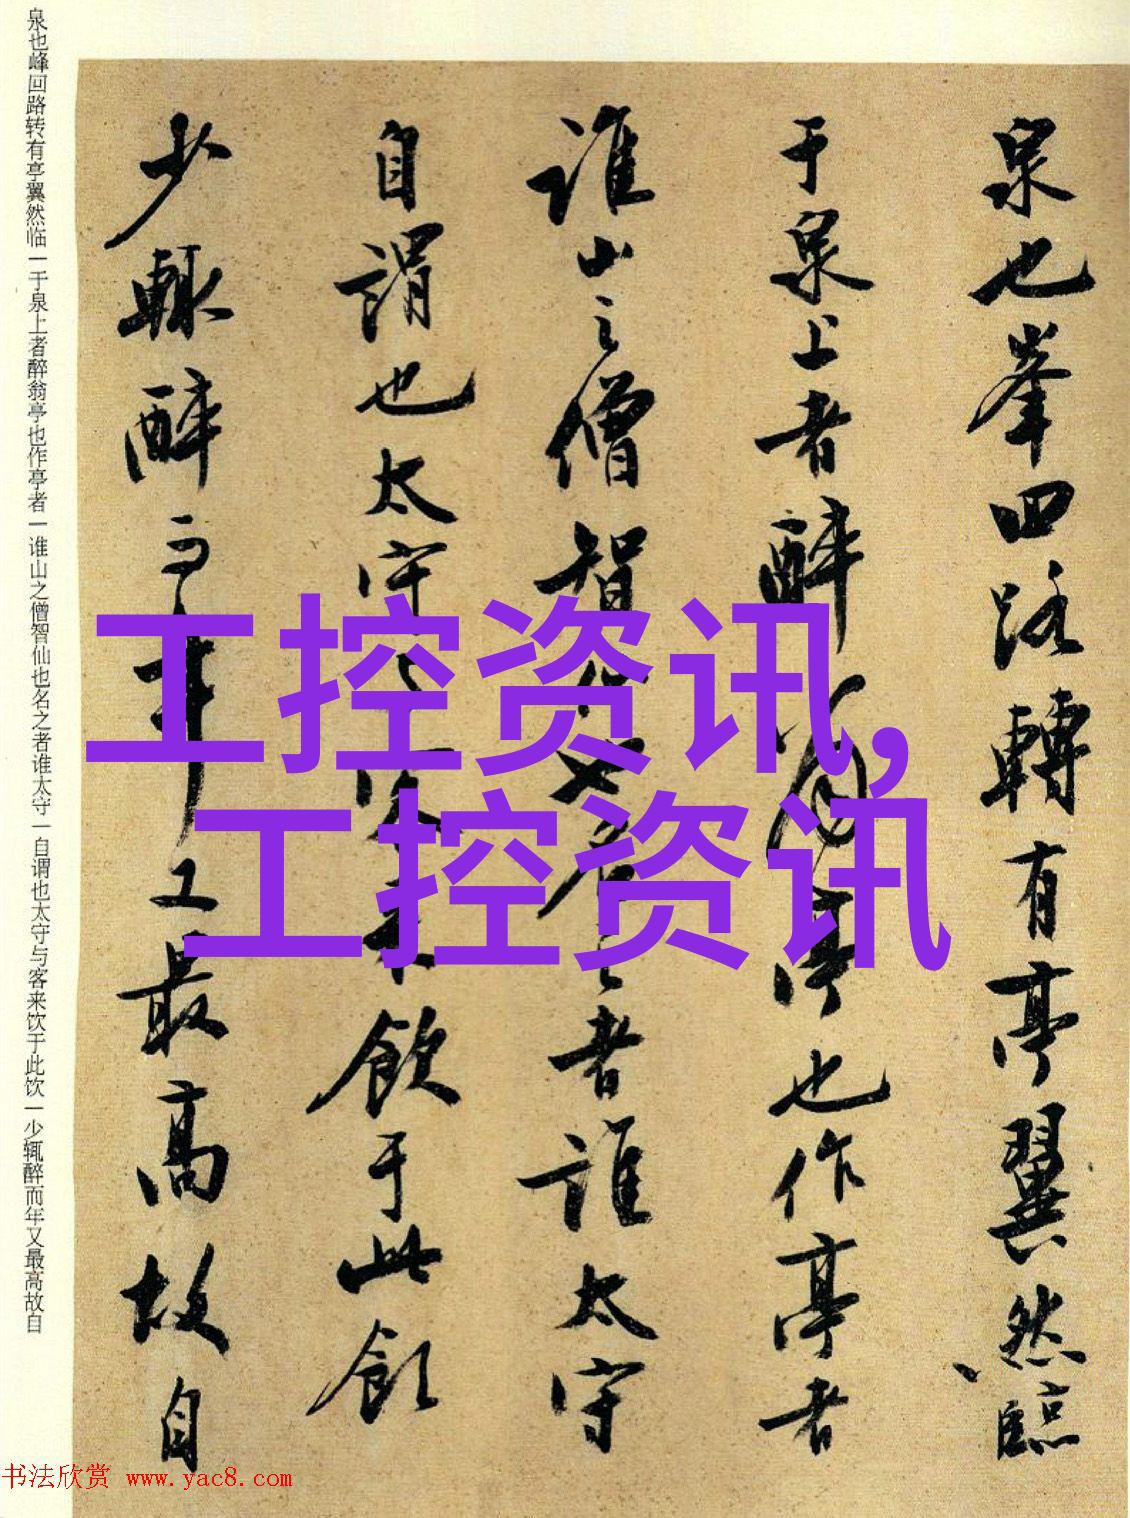 泉也峰回路转有亭翼然临一于泉上者醉翁亭也作亭者一谁山之僧智仙也名之者谁太守一自谓也太守与客来饮于此饮一少辄醉而年又最高故自
泉也峯回路轉有亭翼然臨
于泉上者醉翁亭也作亭者
誰山之僧智仙也名之者誰太守
自謂也太守与客来飲于此飲
少輒醉而年又最高故自
工控资讯,
工控资讯
书法欣赏 www.yac8.com